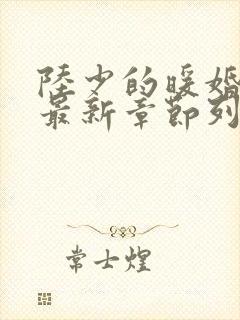 陸少的暖婚
最新章節列
常士煌